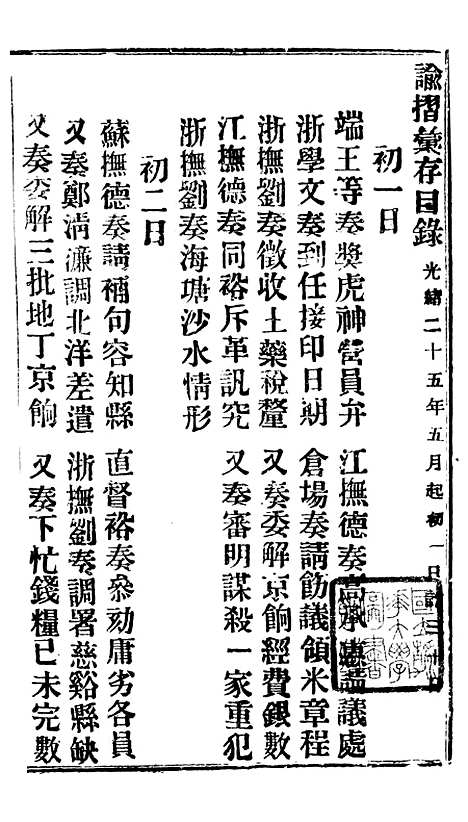 諭摺彙存目錄 光緒二十五年五月起初一日
初一日
端王等奏獎虎神營員弁 江撫德奏高承議處
浙學文奏到任接印日期 倉場奏請飭議領米章程
浙撫劉奏徵收土藥稅釐 又奏委解京餉經費銀數
江撫德奏同裕斥革訊究 又奏審明謀殺一家重犯
浙撫劉奏海塘沙水情形
初二日
蘇撫德奏請補句容知縣 直督裕奏參劾庸劣各員
又奏鄭清濂調北洋差遣 浙撫劉奏調署慈谿縣缺
又奏委解三批地丁京餉 又奏下忙錢糧已未完數